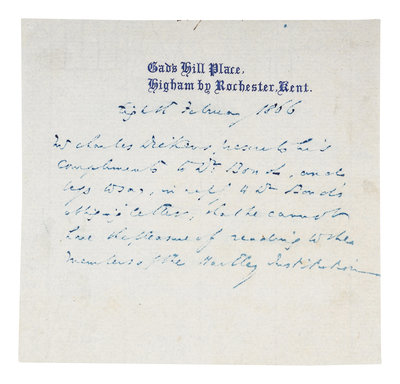 Gad's Hill Place,
Higham by Rochester, Kent.
Eighth February 1866
Mr Charles Dickens presents his
compliments to Dr Bond, and
begs to say, in reply to Dr Bond's
obliging letter, that he cannot
have the pleasure of reading to the
members of the Hartley Institution